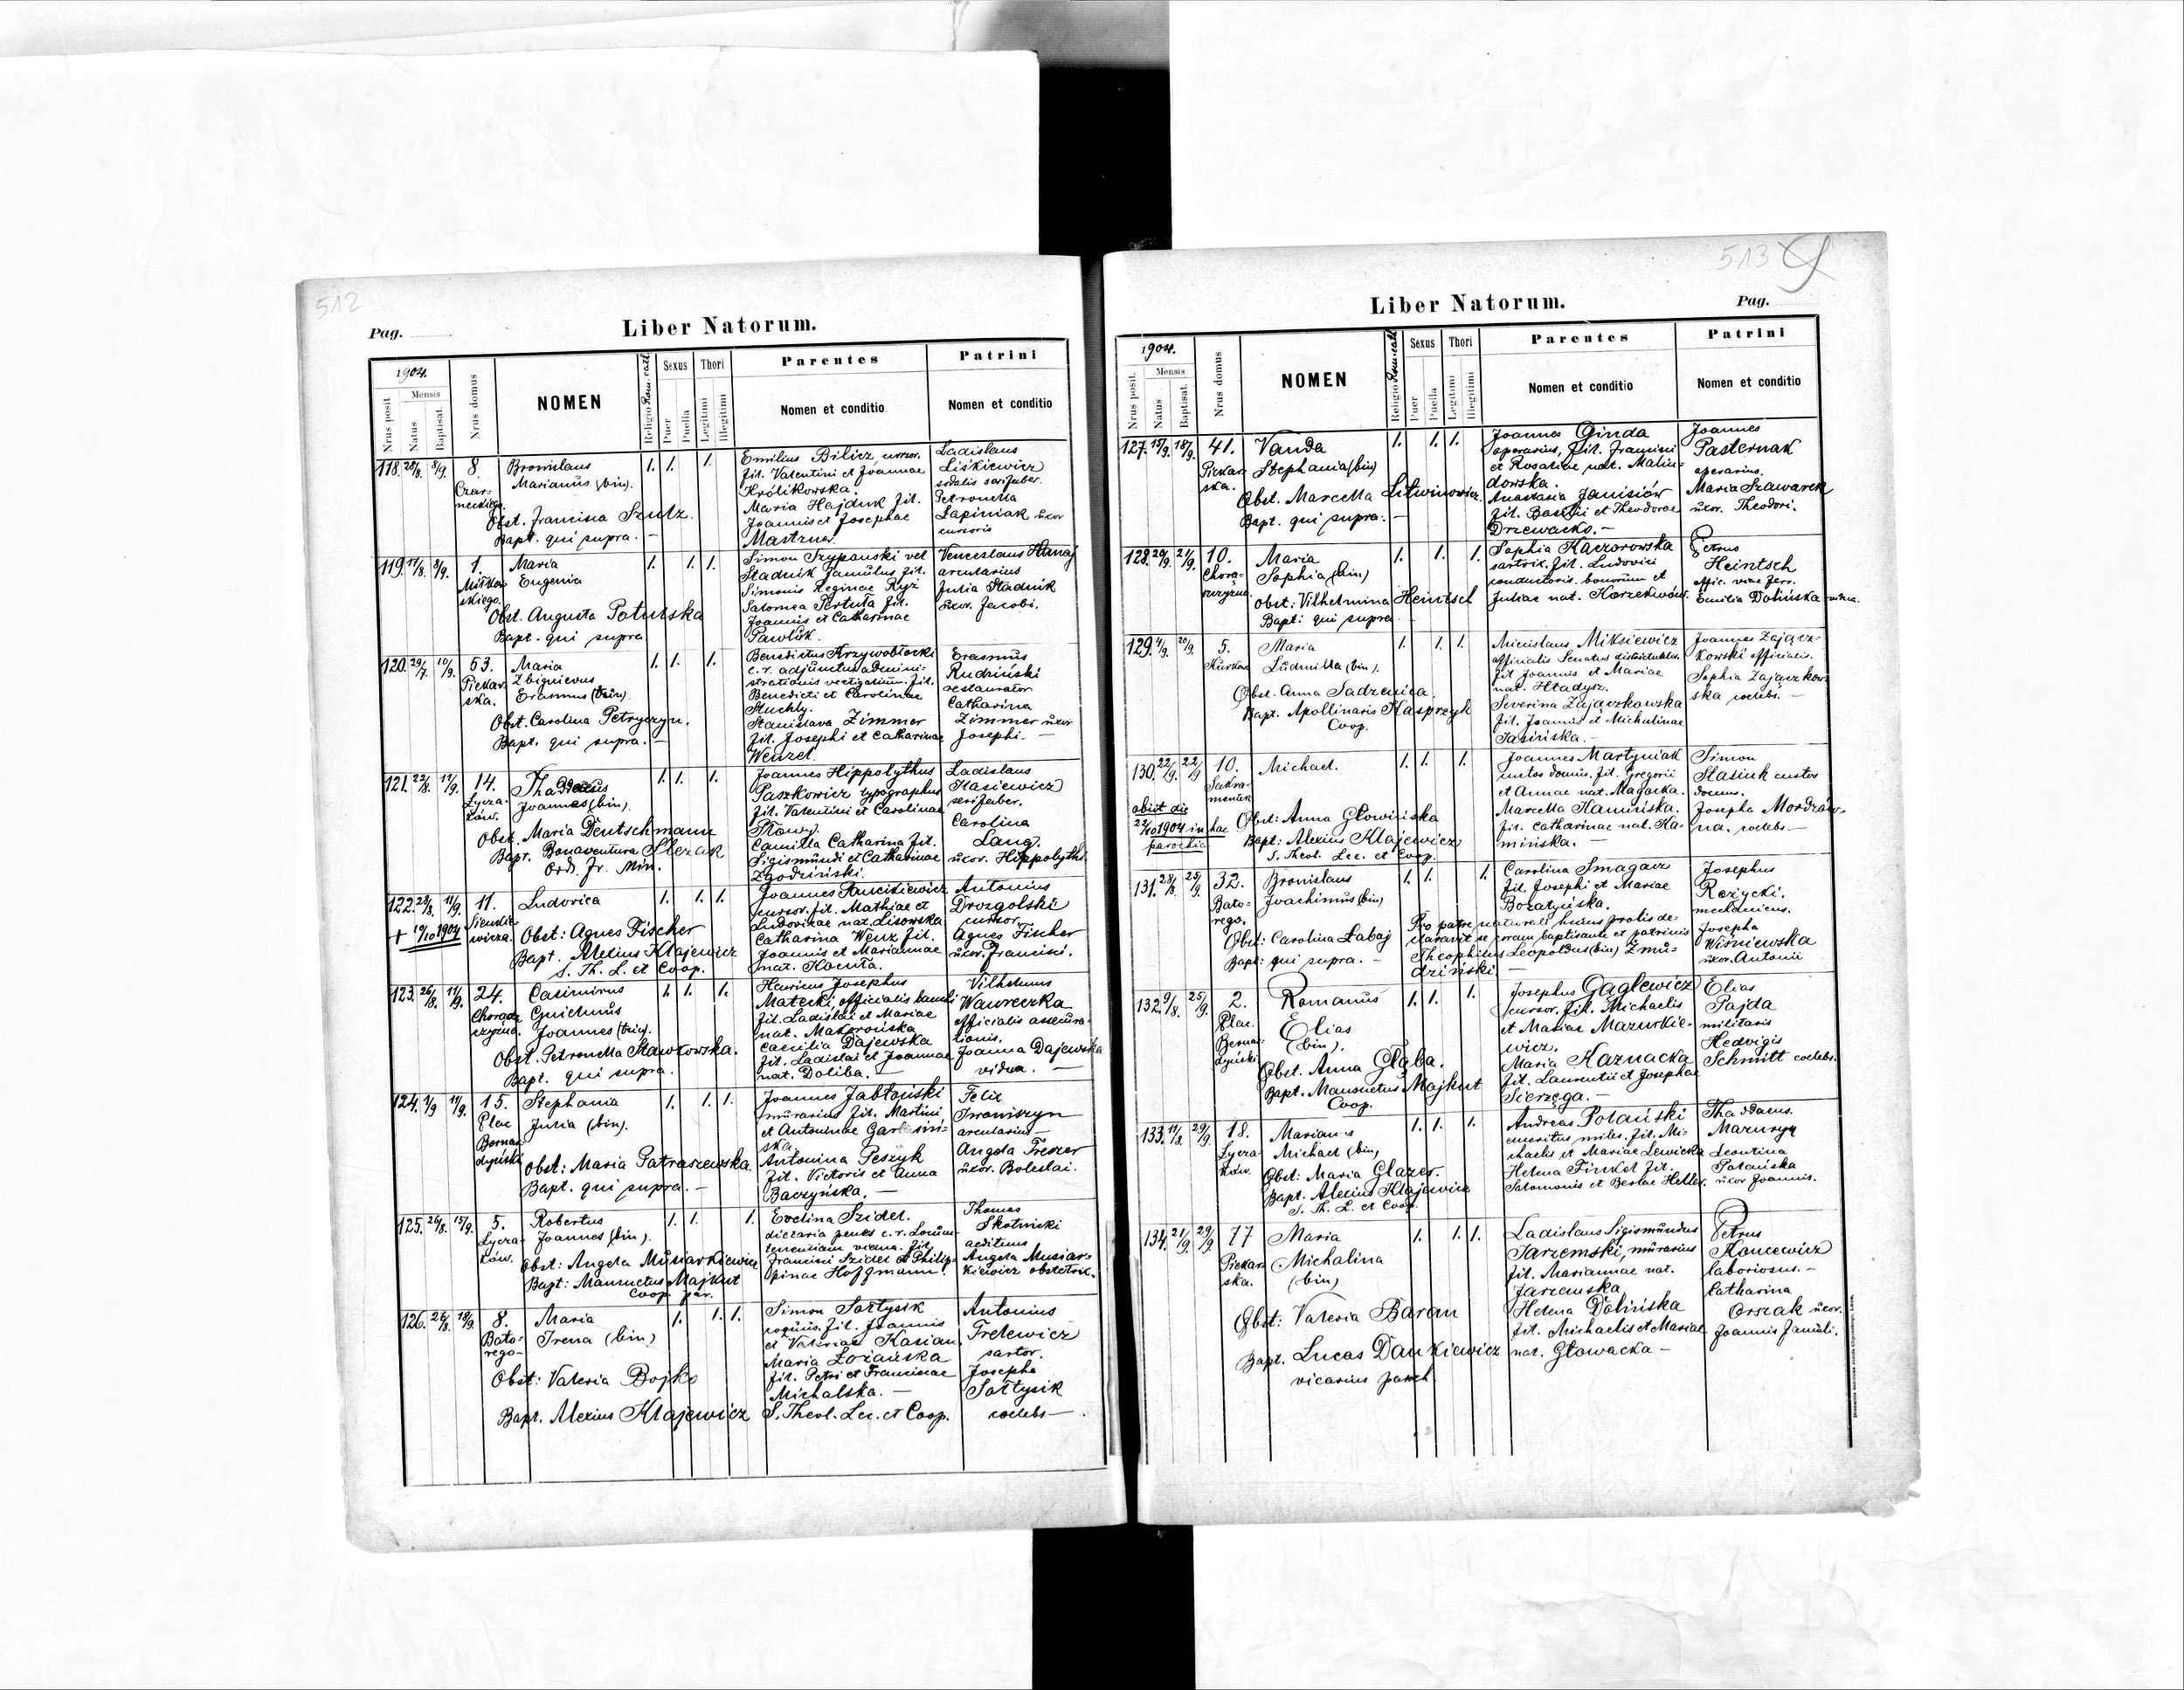 512
Pag.
Liber Natorum.
1904.
Nrus posit
Mensis
Natus
Baptisat.
Nrus domus
NOMEN
Religio Rom. cath
Sexus
Puer
Puella
Thori
Legitimi
Illegitimi
Parentes
Nomen et conditio
Patrini
Nomen et conditio
118. 28/8. 8/9. 8. Bronislaus 1. 1. 1.
Czar-
neckiego
Marianus (bin).
Obst. Francisca Szulz.
Bapt. qui supra. —
Emilius Bilicz cursor.
fil. Valentini et Joannae
Królikowska.
Maria Hajduk fil.
Joannis et Josephae
Ladislaus
Liśkiewicz
sodalis serifaber.
Petronella
Łapiniak uxor
cursoris
119. 17/8. 8/9. 1. Maria 1. 1. 1.
Eugenia
Obst. Augusta Potutska
Bapt. qui supra
Simon Szypanski vel
Stadnik famulus fil.
Simonis Reginae Ryż
Salomea Pertuta fil.
Joannis et Catharinae
Pawluk.
Venceslaus Hanaj
arcularius
Julia Stadnik
uxor. Jacobi.
120. 29/7. 10/9. 53. Maria 1. 1. 1.
Piekar-
ska.
Zbignievus
Erasmus (trin).
Obst. Carolina Petryczyn.
Bapt. qui supra. —
Benedictus Krzywobłocki
c. r. adjunctus admini-
strationis vectigalium. fil.
Benedicti et Carolinae
Stuchly.
Stanislava Zimmer
fil. Josephi et Catharinae
Wenzel.
Erasmus
Rudziński
restaurator
Catharina
Zimmer uxor
Josephi. —
121. 22/8. 11/9. 14. Thaddaeus 1. 1. 1.
Łycza-
ków.
Joannes (bin).
Obst. Maria Deutschmann
Bapt. Bonaventura Slezak
Ord. Fr. Min.
Joannes Hippolythus
Paszkowicz typographus
fil. Valentini et Carolinae
Camilla Catharina fil.
Sigismundi et Catharinae
Zgodziński.
Ladislaus
Stasiewicz
serifaber.
Carolina
Lang.
uxor. Hippolythi
122. 28/8. 11/9. 11. Ludovica 1. 1. 1.
+ 19/10 1904
Sienkie-
wicza.
Obst: Agnes Fischer
Bapt: Alexius Klajewicz
S. Th. L. et Coop.
cursor. fil. Mathiae et
Ludovicae nat. Lisowska
Catharina Wenz fil.
Joannis et Mariannae
nat. Komta.
Antonius
Drozgolski
cursor.
Agnes Fischer
uxor. Francisci.
123. 26/8. 11/9. 24. Casimirus 1. 1. 1.
Choraż-
czyzna.
Guielmus
Joannes (trin).
Obst. Petronella Sławkowska.
Bapt. qui supra.
Henricus Josephus
Matecki, officialis banchi
fil. Ladislai et Mariae
nat. Makarońska
Caecilia Dajewska
fil. Ladislai et Joannae
nat. Doliba. —
Vilhelmus
Wawreczka
officialis assecura-
tionis.
Joanna Dajewska
vidua. —
124. 1/9 11/9. 15. Stephania 1. 1. 1.
Plac
Bernar-
dyński
Julia (bin).
Obst: Maria Patraszewska.
Bapt. qui supra. —
Joannes Jabłoński
murarius fil. Martini
et Antoninae
ska.
Antonina Peszyk
fil. Victoris et Anna
Baczyńska. —
Felix
Iwaniszyn
arcularius —
Angela Treszer
uxor. Boleslai.
125. 26/8. 15/9. 5. Robertus 1. 1. 1.
Łycza-
ków.
Joannes (bin).
Obst: Angela Musiarkiewicz
Bapt: Mansuetus Majkut
Coop. par.
Evelina Szidel.
dietaria penes c. r. Locum-
tenentiam vidua. fil.
Francisci Szidel et Philip-
pinae Hoffmann.
Thomas
Skotnicki
aedituus
Angela Musiar-
kiewicz obstetrix.
126. 26/8. 18/9. 8. Maria 1. 1. 1.
Bato-
rego —
Irena (bin)
Obst: Valeria Bojko
Bapt. Alexius Klajewicz S. Theol. Lec. et Coop.
Simon Sołtysik
coquus. fil. Joannis
et Valeriae Kasian.
Maria Łożańska
fil. Petri et Franciscae
Michalska. —
Antonius
Trelewicz
sartor.
Josepha
Sołtysik
coelebs —
513
Liber Natorum.
Pag.
1904.
Nrus posit.
Mensis
Natus
Baptisat.
Nrus domus
NOMEN
Religio Rom. cath
Sexus
Puer
Puella
Thori
Legitimi
Illegitimi
Parentes
Nomen et conditio
Patrini
Nomen et conditio
127. 15/9. 18/9. 41. Vanda 1. 1. 1.
Piekar-
ska.
Stephania (bin)
Obst. Marcella Litwinowicz.
Bapt. qui supra. —
Joannes Ginda
operarius, fil. Francisci
et Rosaliae nat. Malin-
dowska.
Anastasia Janisiów
fil. Basilii et Theodorae
Drzewacko. —
Joannes
Pasternak
operarius.
Maria Szawarek
uxor. Theodori.
128. 20/9. 21/9. 10. Maria 1. 1. 1.
Chora-
szczyzna.
Sophia (bin)
Obst: Vilhelmina Heintsch
Bapt: qui supra —
Sophia Kaczorowska
sartrix. fil. Ludovici
conductoris bonorum et
Juliae nat. Korzeniów.
Petrus
Heintsch
offic. viae ferr.
Emilia Dolińska vidua.
129. 4/9. 20/9. 5. Maria 1. 1. 1.
Kurkowa
Ludmilla (bin).
Obst. Anna Sadzenica.
Bapt. Apollinaris Kasprzyk
Coop.
Miecislaus Miksiewicz
officialis Senatus
fil Joannis et Mariae
nat. Hladysz.
Severina Zajączkowska
fil. Joannis et Michalinae
Jasińska. —
Joannes Zającz-
kowski officialis.
Sophia Zajączkow-
ska coelebs. —
130. 22/9. 22/9 10. Michael. 1. 1. 1.
Sakra-
mentek
obiit die
22/10 1904 in hac
parochia
Obst: Anna Głowińska
Bapt: Alexius Klajewicz
S. Theol. Lec. et Coop.
Joannes Martyniak
custos domus. fil. Gregorii
et Annae nat. Magacka.
Marcella Kamińska.
fil. Catharinae nat. Ka-
mińska. —
Simon
Stasiuk custos
domus.
Josepha Mordzaw-
na. coelebs —
131. 28/8. 25/9. 32. Bronislaus 1. 1. 1.
Bato-
rego.
Joachimus (bin)
Obst: Carolina Łabaj
Bapt: qui supra. —
Carolina Smagacz
fil. Josephi et Mariae
Bozatyńska.
Pro patre naturali huius prolis de-
claravit se coram baptisante et patrinis
Theophilus Leopoldus (bin) Żmu-
dziński —
Josephus
Reżycki.
mechanicus.
Josepha
Wiśniewska
uxor. Antonii
132. 9/8. 25/9. 2. Romanus 1. 1. 1.
Plac.
Bernar-
dyński
Elias
(bin).
Obst. Anna Głąba.
Bapt. Mansuetus Majkut
Coop.
Josephus Gąglewicz
cursor. fil. Michaelis
et Mariae Mazurkie-
wicz.
Maria Kaznacka
fil. Laurentii et Josephae
Sierzęga. —
Elias
Pajda
militaris
Hedvigis
Schmitt coelebs.
133. 11/8. 29/9. 18. Marianus 1. 1. 1.
Łycza-
ków.
Michael (bin)
Obst: Maria Glazer.
Bapt. Alexius Klajewicz
S. Th. L. et Coop.
Andreas Polański
emeritus miles. fil. Mi-
chaelis et Mariae Lewicka
Helena Finkel fil.
Salomonis et Berlae Heller.
Thaddaeus.
Mazuryq
Leontina
Polańska
uxor Joannis.
134. 21/9. 29/9. 77 Maria 1. 1. 1.
Piekar-
ska.
Michalina
(bin)
Obst: Valeria Baran
Bapt. Lucas Dankiewicz
vicarius paroch
Ladislaus Sigismundus
Jarzemski, murarius
fil. Mariannae nat.
Jarzemska
Helena Dolińska
fil. Michaelis et Mariae
nat. Głowacka —
Petrus
Koncewicz
laboriosus. —
Catharina
Orszak uxor.
Joannis famuli.